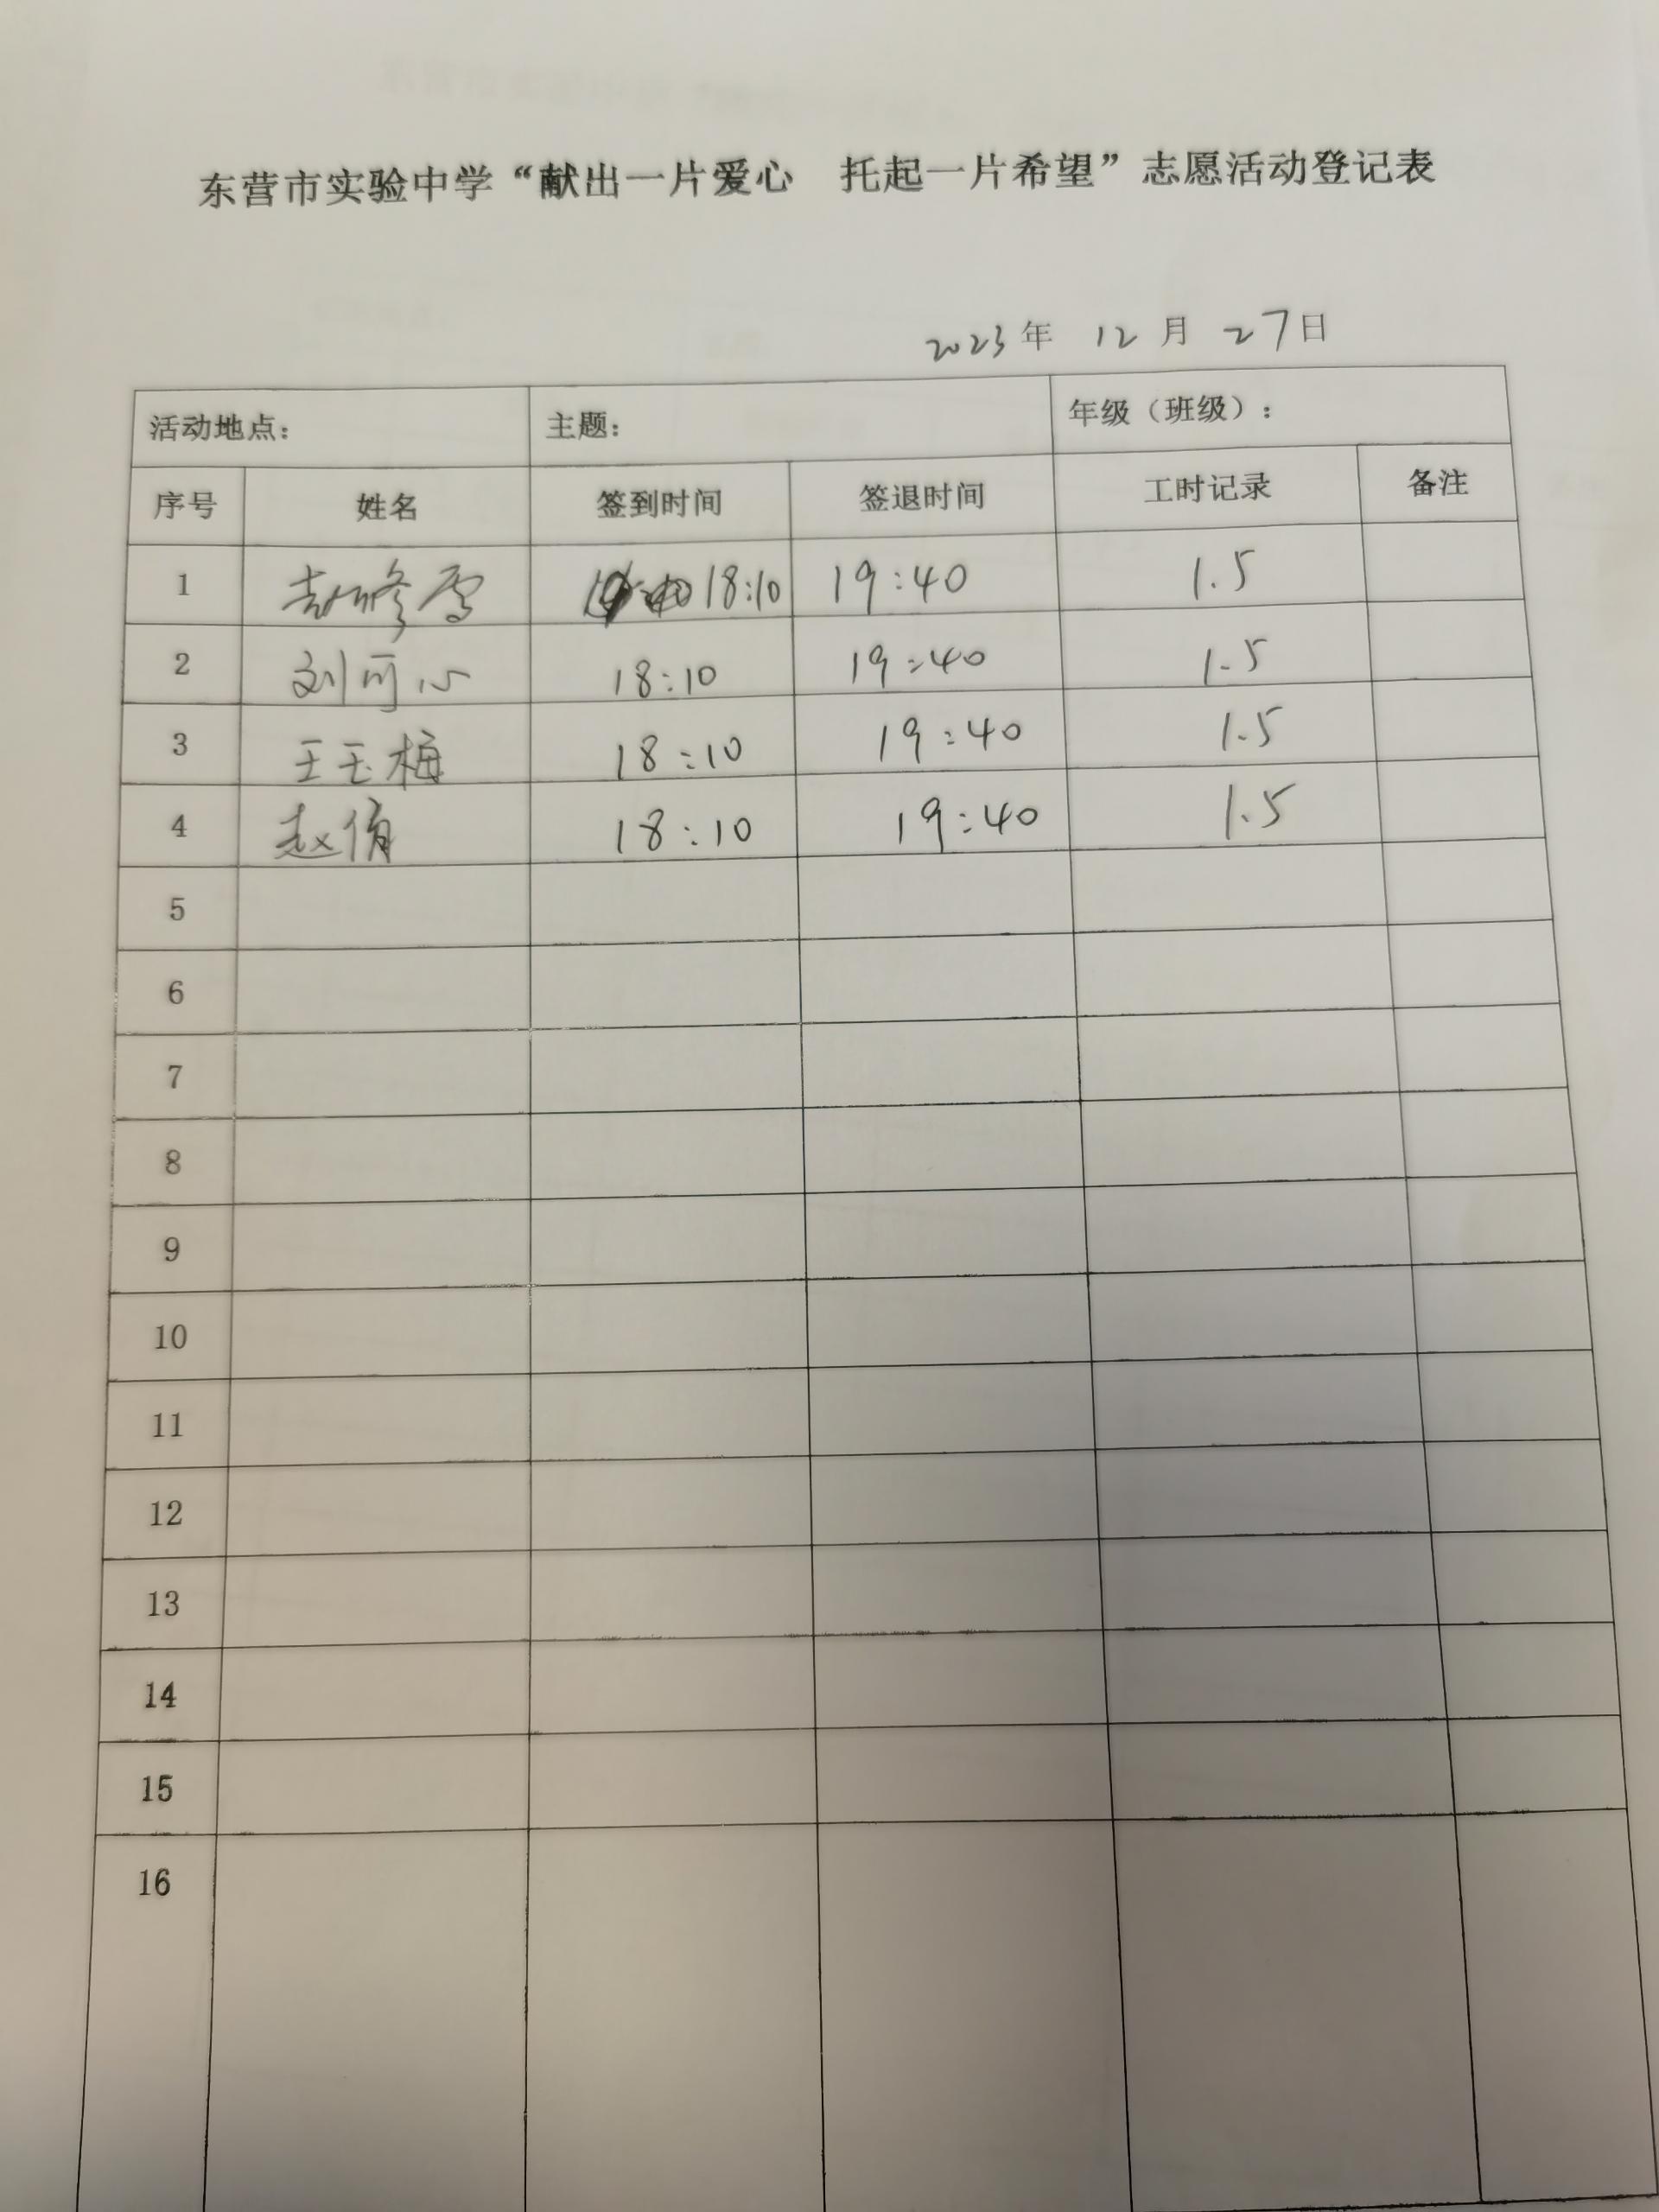 东营市实验中学“献出一片爱心 托起一片希望”志愿活动登记表
2023年 12月 27日
活动地点: 主题: 年级（班级）:
序号 姓名 签到时间 签退时间 工时记录 备注
1 18:10 19:40 1.5
2 刘可心 18:10 19:40 1.5
3 王玉梅 18:10 19:40 1.5
4 赵倩 18:10 19:40 1.5
5
6
7
8
9
10
11
12
13
14
15
16